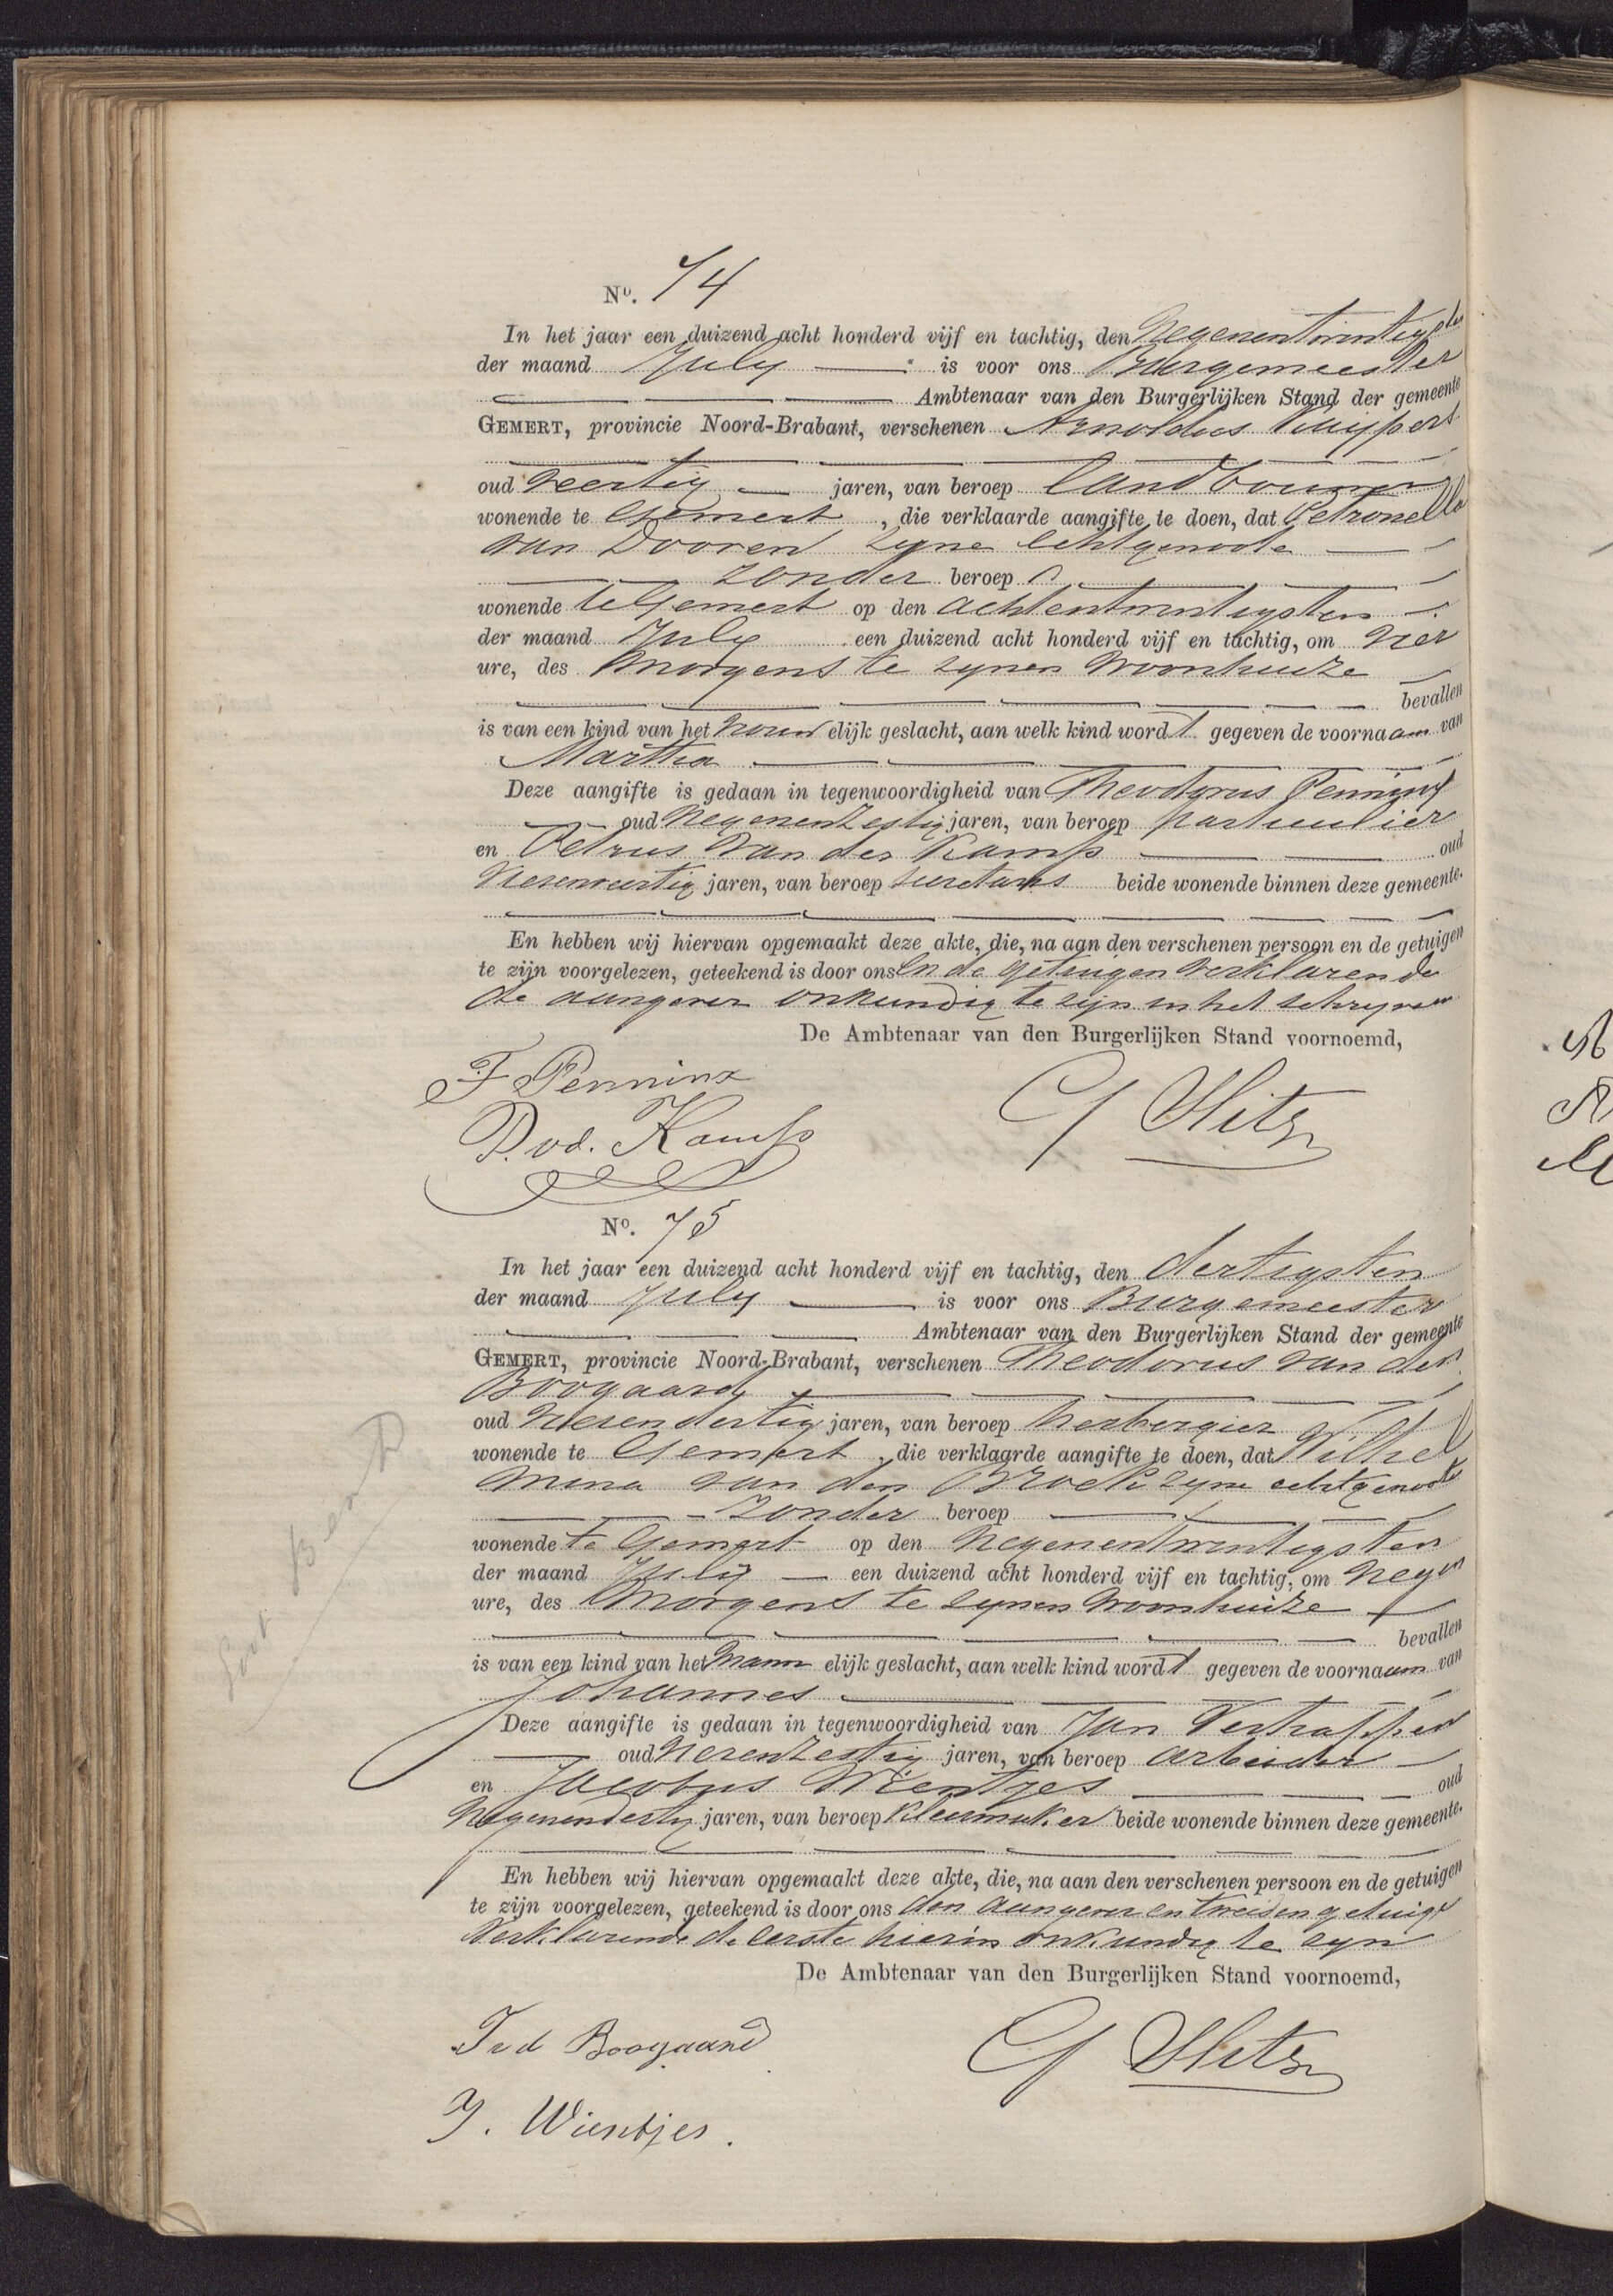 No. 74
In het jaar een duizend acht honderd vijf en tachtig, den Negenentwintigsten
der maand July is voor ons Burgemeester
Ambtenaar van den Burgerlijken Stand der gemeente
GEMERT, provincie Noord-Brabant, verschenen Arnoldus Kuijpers
oud veertig jaren, van beroep landbouwer
wonende te Gemert, die verklaarde aangifte te doen, dat Petronella
van Dooren zyne echtgenoote
zonder beroep
wonende te Gemert op den achtentwintigsten
der maand July een duizend acht honderd vijf en tachtig, om vier
ure, des morgens te zynen woonhuize
bevallen
is van een kind van het vrouwelijk geslacht, aan welk kind wordt gegeven de voornaam van
Martha
Deze aangifte is gedaan in tegenwoordigheid van Theodorus Peninx
oud Negenenzestig jaren, van beroep particulier
en Petrus van der Kamp oud
jaren, van beroep secretaris beide wonende binnen deze gemeente.
En hebben wij hiervan opgemaakt deze akte, die, na aan den verschenen persoon en de getuigen
te zijn voorgelezen, geteekend is door ons en de getuigen verklarende
de aangever onkundig te zijn in het schryven
De Ambtenaar van den Burgerlijken Stand voornoemd,
F Penninx
P. vd. Kamp
No. 75
In het jaar een duizend acht honderd vijf en tachtig, den dertigsten
der maand July is voor ons Burgemeester
Ambtenaar van den Burgerlijken Stand der gemeente
GEMERT, provincie Noord-Brabant, verschenen Theodorus van den
Boogaard
oud vierendertig jaren, van beroep herbergier
wonende te Gemert, die verklaarde aangifte te doen, dat Wilhel
mina van den Broek zyne echtgenoote
zonder beroep
wonende te Gemert op den Negenentwintigsten
der maand July een duizend acht honderd vijf en tachtig, om Negen
ure, des morgens te zynen woonhuize
bevallen
is van een kind van het mannelijk geslacht, aan welk kind wordt gegeven de voornaam van
Johannes
Deze aangifte is gedaan in tegenwoordigheid van Jan Verstappen
oud vierenzestig jaren, van beroep arbeider
en Jacobus Wientjes oud
Negenendertig jaren, van beroep kleermaker beide wonende binnen deze gemeente.
En hebben wij hiervan opgemaakt deze akte, die, na aan den verschenen persoon en de getuigen
te zijn voorgelezen, geteekend is door ons den aangever en tweeden getuige
Verklarende de eerste hierin onkundig te zyn
De Ambtenaar van den Burgerlijken Stand voornoemd,
Tvd Boogaard
J. Wientjes.